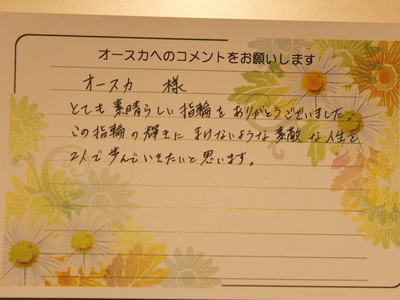 オースカへのコメントをお願いします
オースカ 様
とても素晴らしい指輪をありがとうございました。
この指輪の輝きにまけないような素敵な人生を
2人で歩んでいきたいと思います。